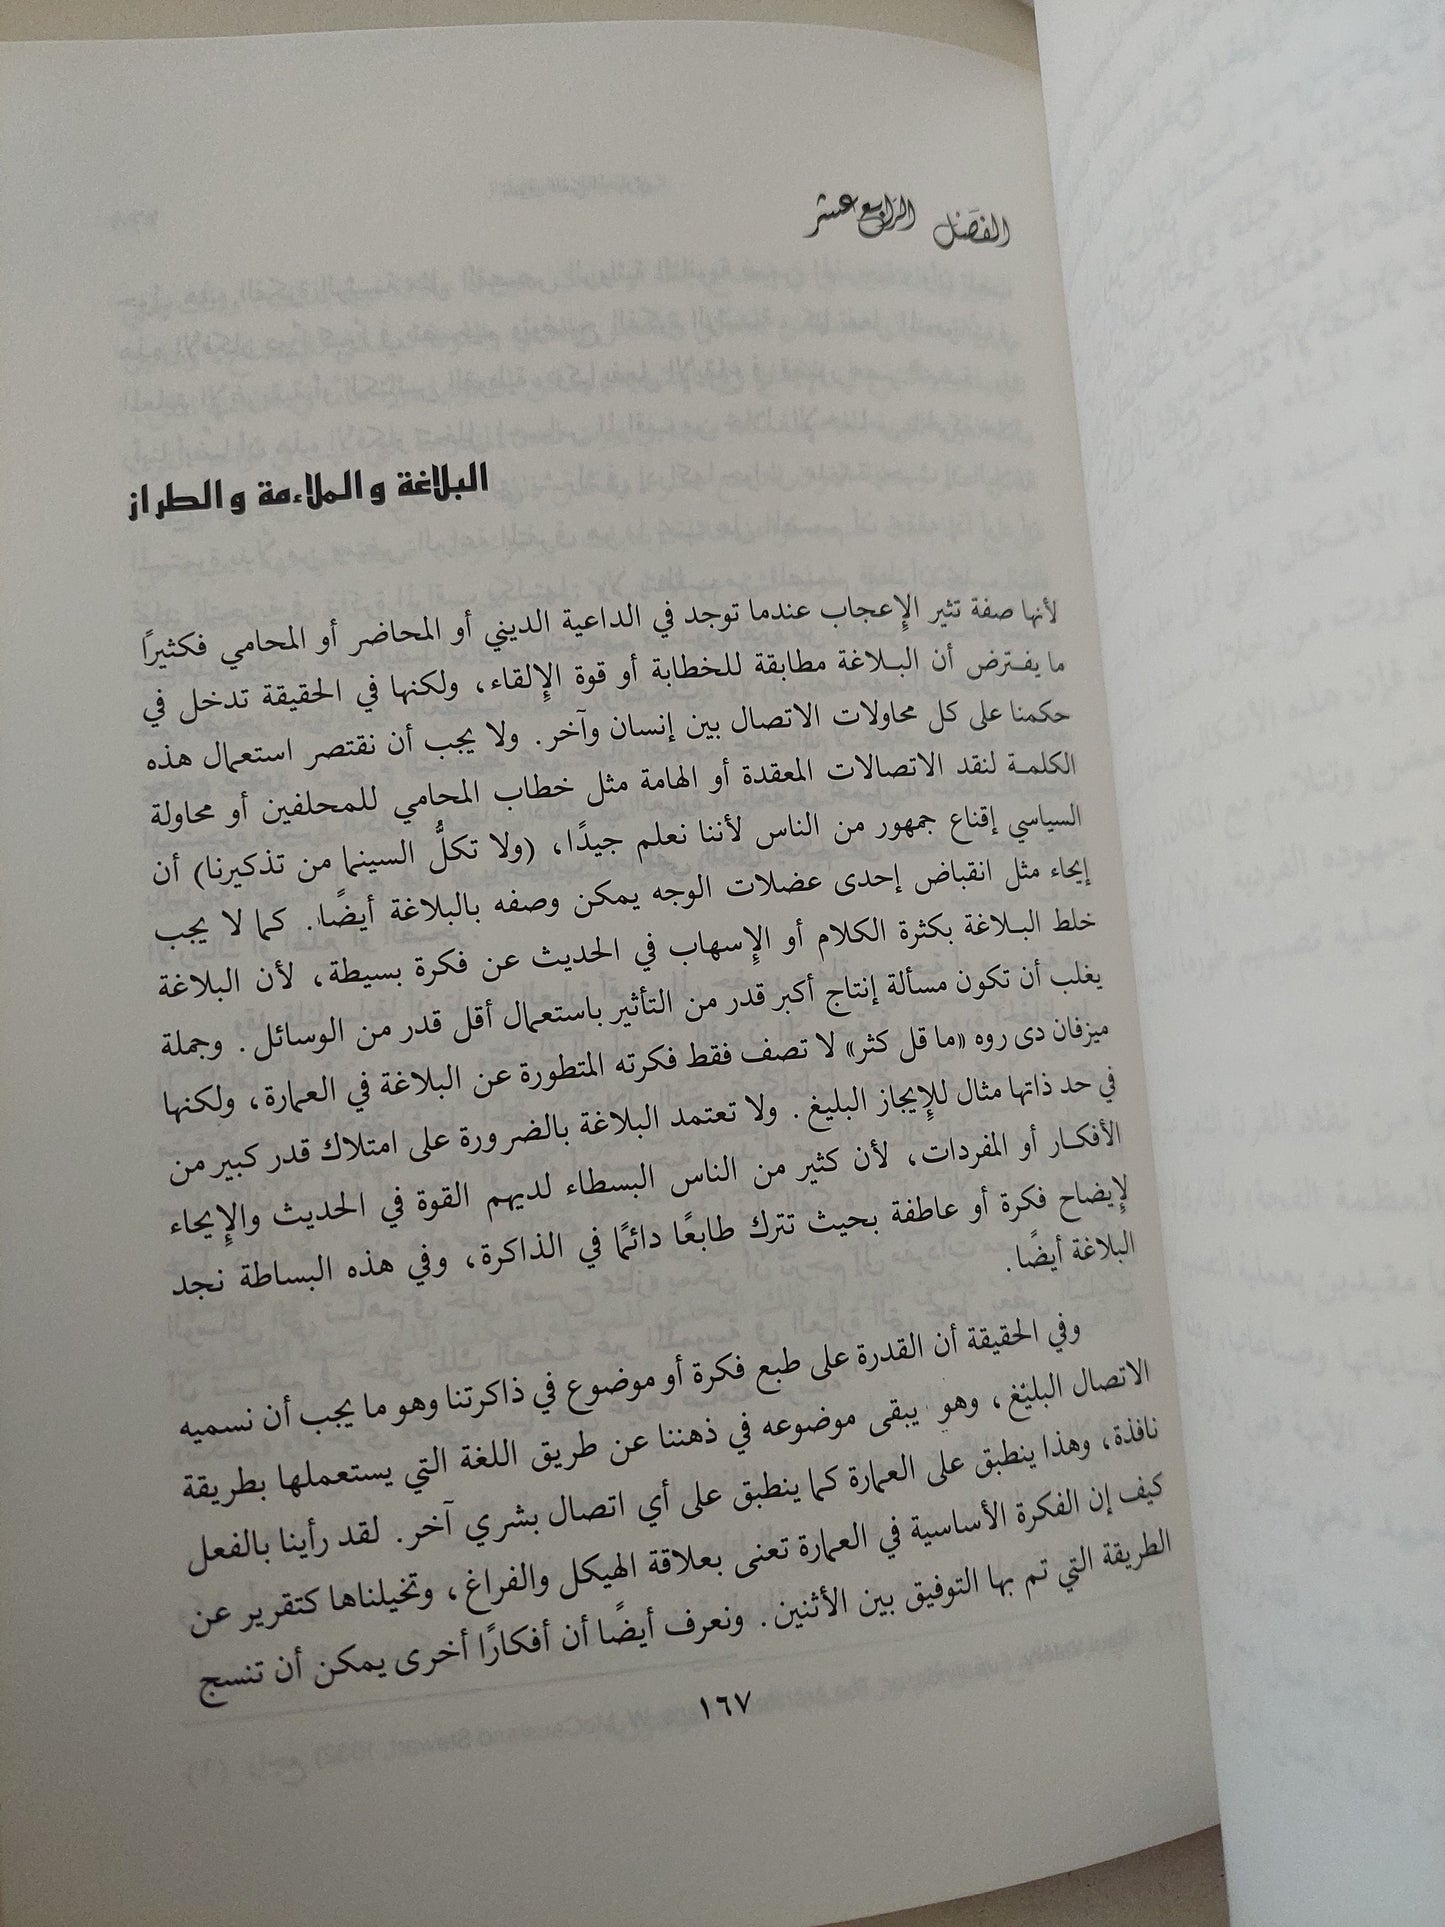 الفصل الرابع عشر
البلاغة والملاءمة والطراز
لأنها صفة تثير الإعجاب عندما توجد في الداعية الديني أو المحاضر أو المحامي فكثيرًا
ما يفترض أن البلاغة مطابقة للخطابة أو قوة الإلقاء، ولكنها في الحقيقة تدخل في
حكمنا على كل محاولات الاتصال بين إنسان وآخر. ولا يجب أن نقتصر استعمال هذه
الكلمة لنقد الاتصالات المعقدة أو الهامة مثل خطاب المحامي للمحلفين أو محاولة
السياسي إقناع جمهور من الناس لأننا نعلم جيدًا، (ولا تكلُّ السينما من تذكيرنا) أن
إيحاء مثل انقباض إحدى عضلات الوجه يمكن وصفه بالبلاغة أيضًا. كما لا يجب
خلط البلاغة بكثرة الكلام أو الإسهاب في الحديث عن فكرة بسيطة، لأن البلاغة
يغلب أن تكون مسألة إنتاج أكبر قدر من التأثير باستعمال أقل قدر من الوسائل. وجملة
ميزفان دى روه «ما قل كثر» لا تصف فقط فكرته المتطورة عن البلاغة في العمارة، ولكنها
في حد ذاتها مثال للإيجاز البليغ. ولا تعتمد البلاغة بالضرورة على امتلاك قدر كبير من
الأفكار أو المفردات، لأن كثير من الناس البسطاء لديهم القوة في الحديث والإيحاء
لإيضاح فكرة أو عاطفة بحيث تترك طابعًا دائمًا في الذاكرة، وفي هذه البساطة نجد
البلاغة أيضًا.
وفي الحقيقة أن القدرة على طبع فكرة أو موضوع في ذاكرتنا وهو ما يجب أن نسميه
الاتصال البليغ، وهو يبقى موضوعه في ذهننا عن طريق اللغة التي يستعملها بطريقة
نافذة، وهذا ينطبق على العمارة كما ينطبق على أي اتصال بشري آخر. لقد رأينا بالفعل
كيف إن الفكرة الأساسية في العمارة تعنى بعلاقة الهيكل والفراغ، وتخيلناها كتقرير عن
الطريقة التي تم بها التوفيق بين الأثنين. ونعرف أيضًا أن أفكارًا أخرى يمكن أن تنسج
١٦٧